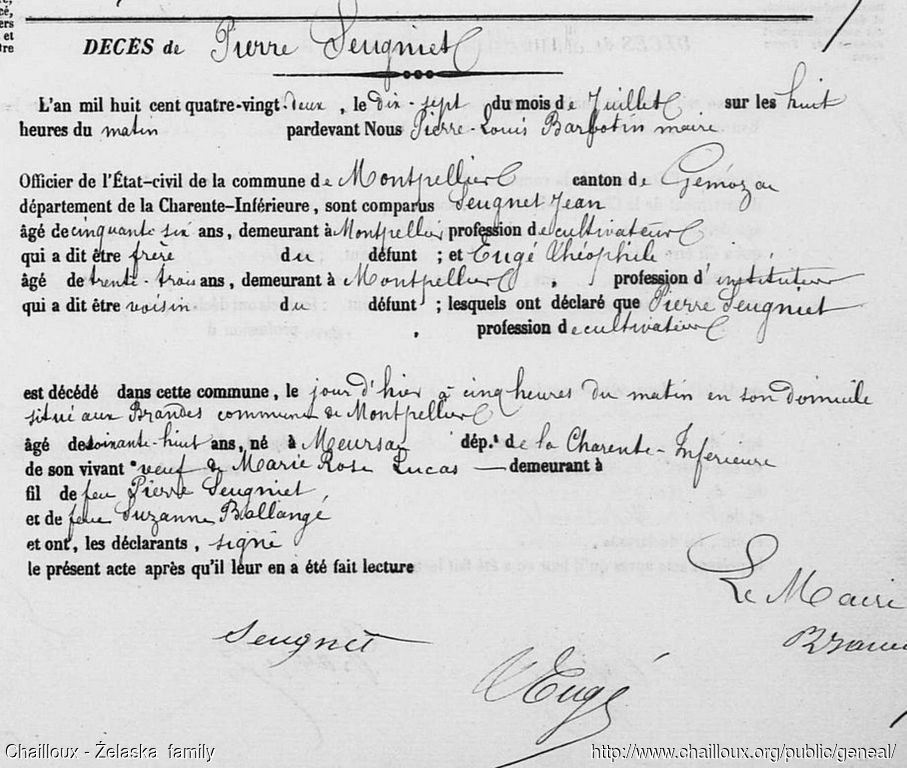 et
DÉCÈS de Pierre Seugniet
L'an mil huit cent quatre-vingt-deux, le dix-sept du mois de Juillet sur les huit
heures du matin pardevant Nous Pierre-Louis Barbotin maire
Officier de l'État-civil de la commune de Montpellier canton de Gémozac
département de la Charente-Inférieure, sont comparus Seugnet Jean
âgé de cinquante six ans, demeurant à Montpellier profession de cultivateur
qui a dit être frère du défunt ; et Eugé Théophile
âgé de trente-trois ans, demeurant à Montpellier, profession d'instituteur
qui a dit être voisin du défunt ; lesquels ont déclaré que Pierre Seugniet
, profession de cultivateur
est décédé dans cette commune, le jour d'hier à cinq heures du matin en son domicile
situé aux Brandes commune de Montpellier
âgé de soixante-huit ans, né à Meursac dép.t de la Charente-Inférieure
de son vivant veuf de Marie Rose Lucas — demeurant à
fil de feu Pierre Seugniet
et de feue Suzanne Ballangé
et ont, les déclarants, signé
le présent acte après qu'il leur en a été fait lecture
Le Maire
Seugnet
Eugé
Chailloux - Želaska family
http://www.chailloux.org/public/geneal/